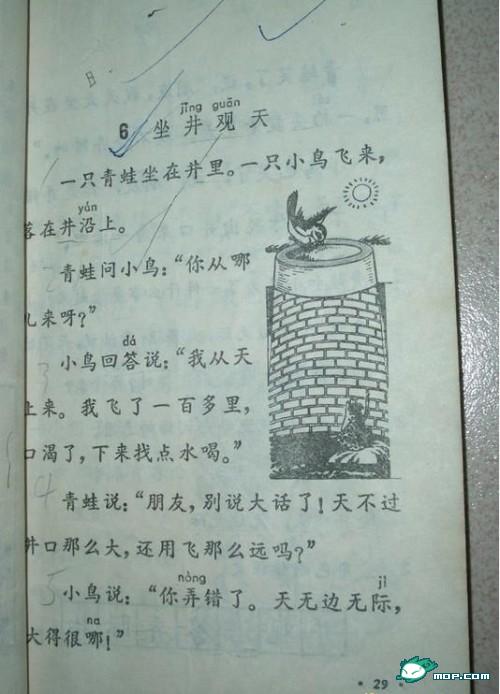 8
jǐng guān
6 坐井观天
一只青蛙坐在井里。一只小鸟飞来，
yán
落在井沿上。
青蛙问小鸟：“你从哪
儿来呀？”
dá
小鸟回答说：“我从天
上来。我飞了一百多里，
口渴了，下来找点水喝。”
青蛙说：“朋友，别说大话了！天不过
井口那么大，还用飞那么远吗？”
nòng jì
小鸟说：“你弄错了。天无边无际，
na
大得很哪！”
1
2
3
4
5
· 29 ·
MOP.COM